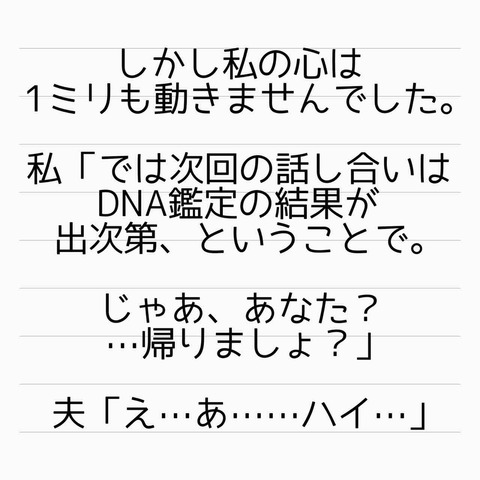 しかし私の心は
1ミリも動きませんでした。
私「では次回の話し合いは
DNA鑑定の結果が
出次第、ということで。
じゃあ、あなた?
…帰りましょ?」
夫「え…あ……ハイ…」